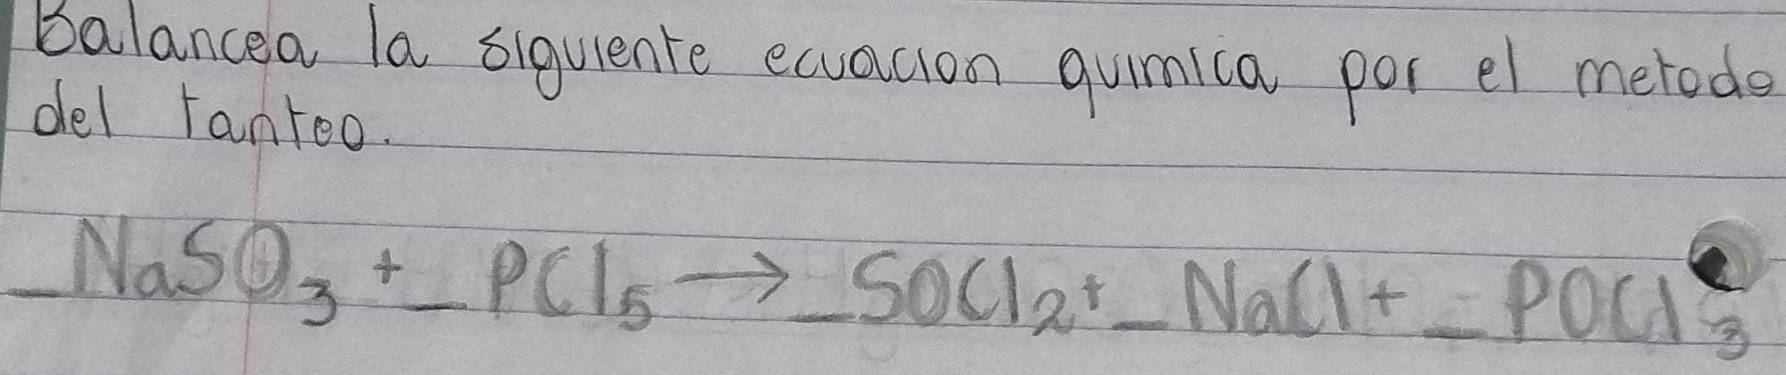 Balancea la siguiente ecuacion quimica por el metodo
del tanteo.
_NaSO₃ + _ PCl₅ → _SOCl₂ + _ NaCl + _ POCl₃